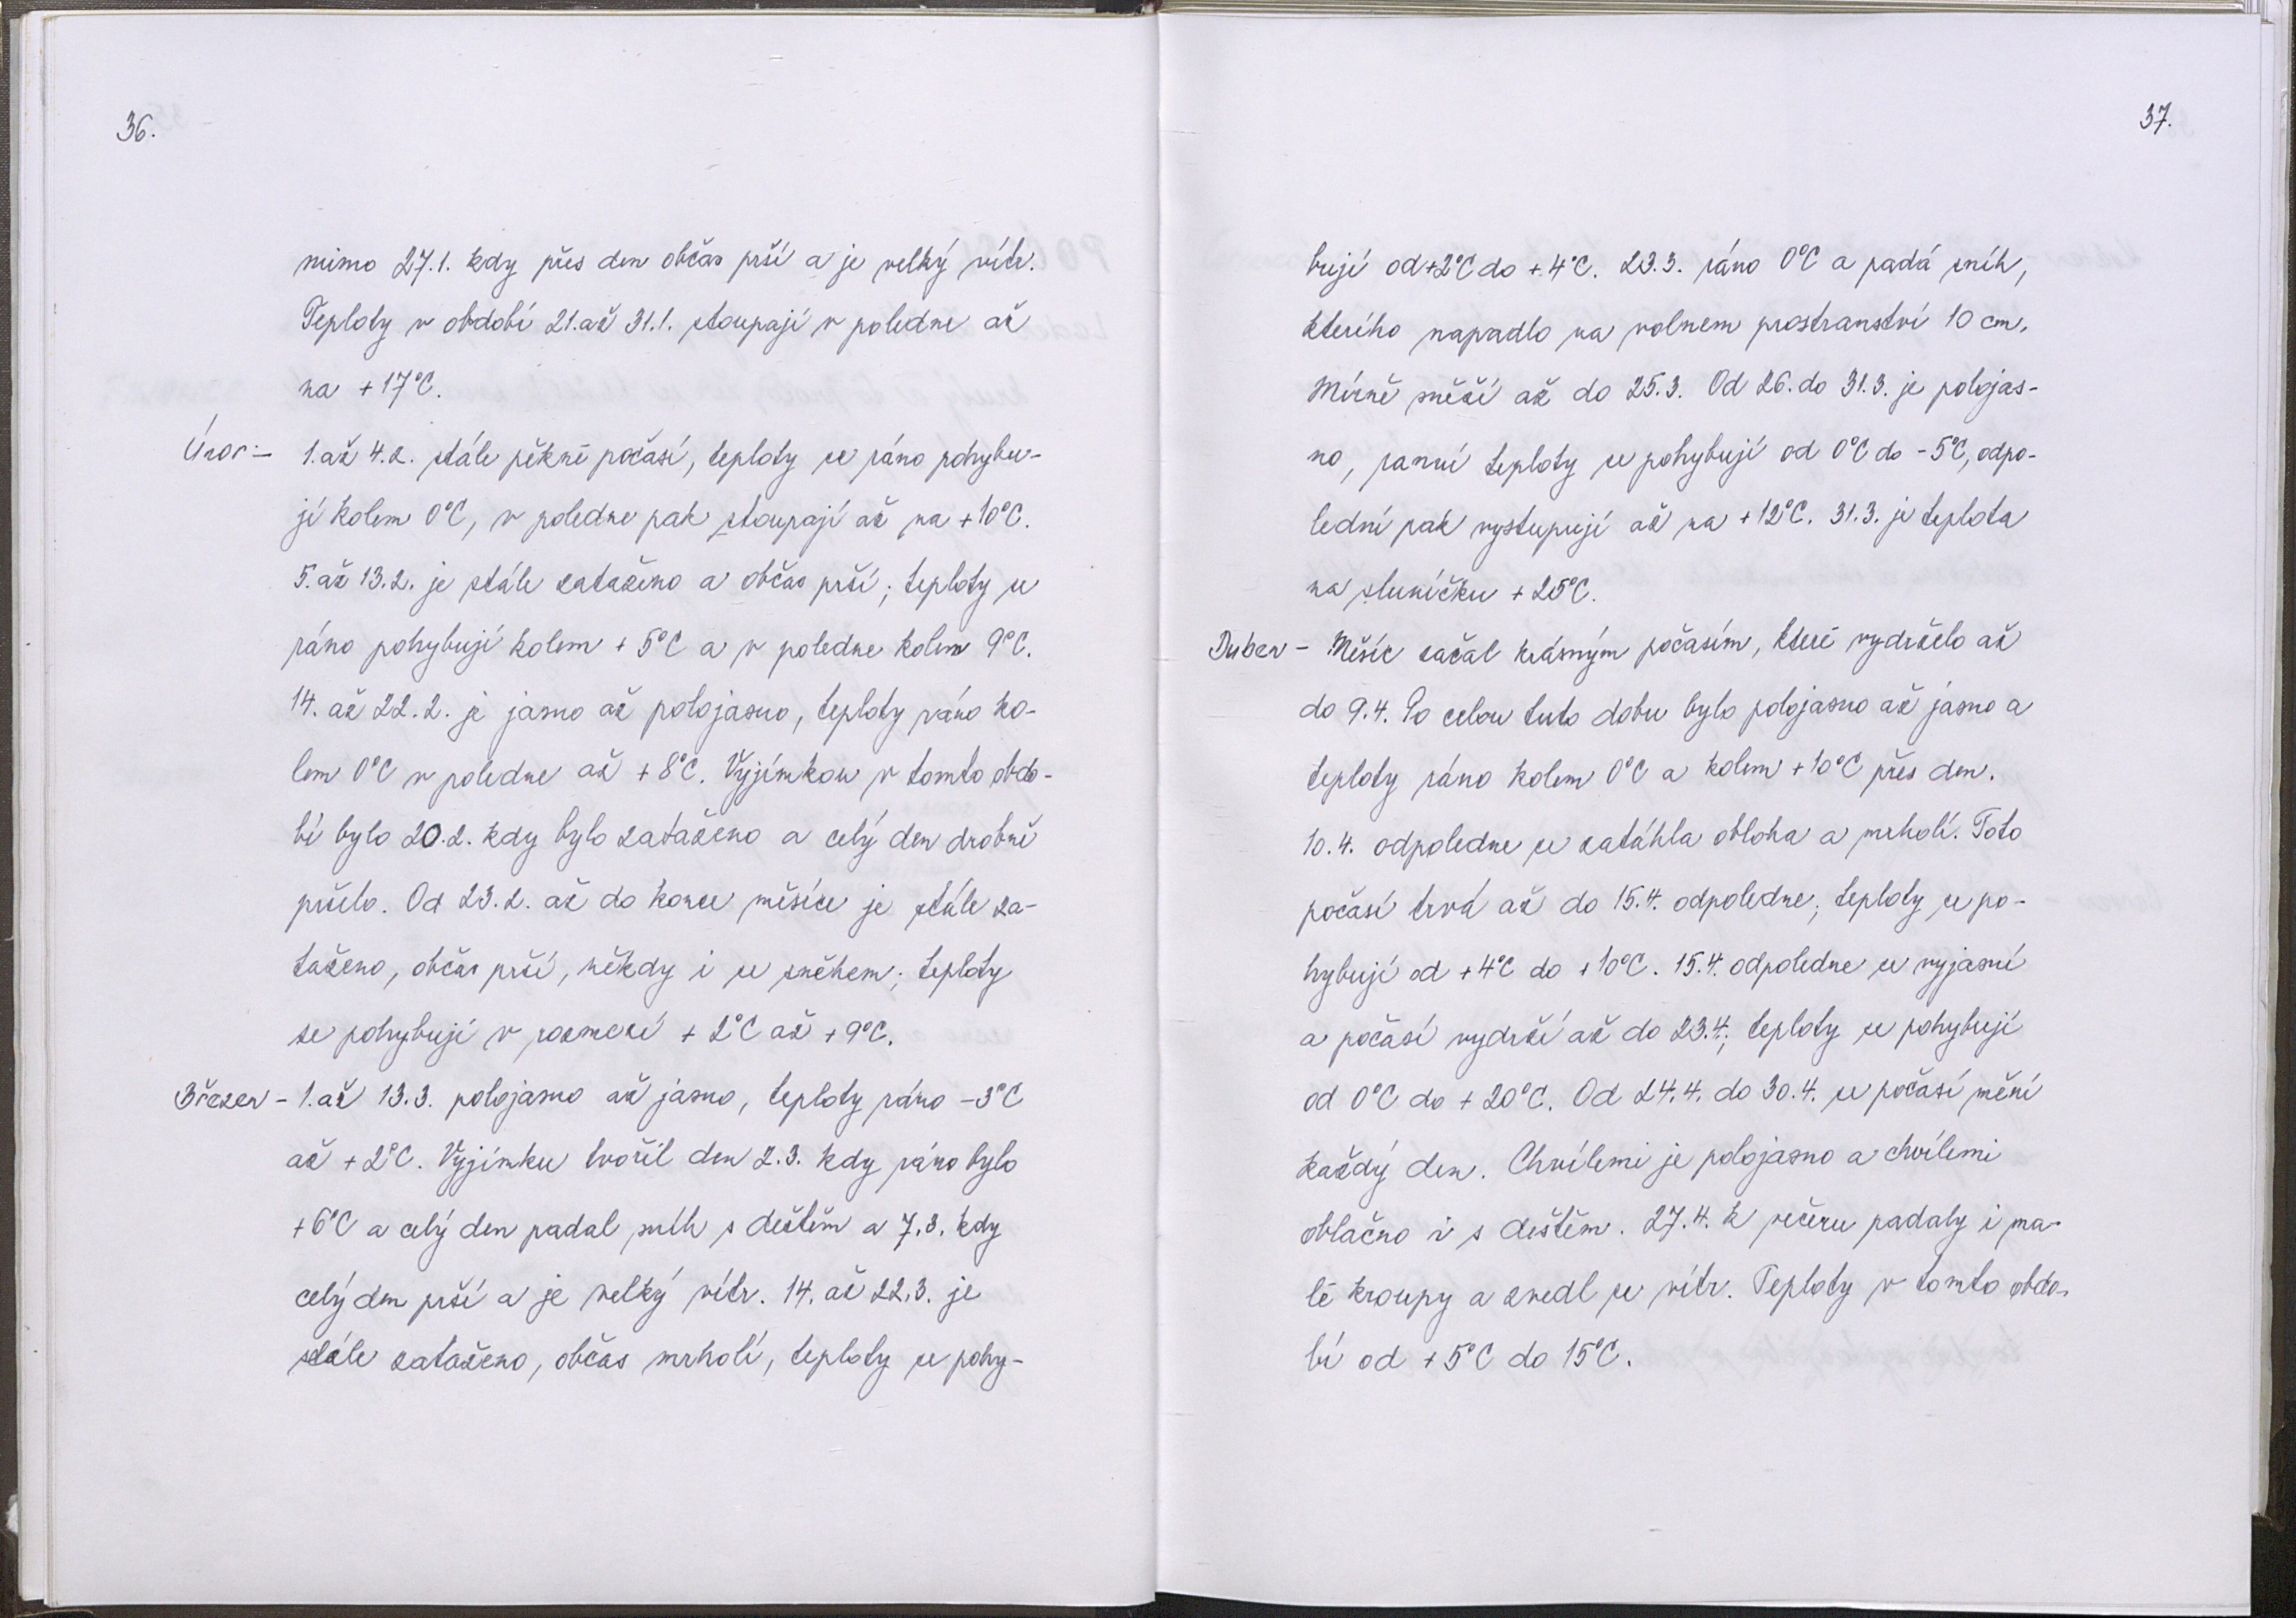 36.
mimo 27.1. kdy přes den občas prší a je velký vítr.
Teploty v období 21.až 31.1. stoupají v poledne až
na +17°C.
Únor - 1.až 4.2. stále pěkné počasí, teploty se ráno pohybu-
jí kolem 0°C, v poledne pak stoupají až na +10°C.
5.až 13.2. je stále zataženo a občas prší; teploty se
ráno pohybují kolem +5°C a v poledne kolem 9°C.
14. až 22.2. je jasno až polojasno, teploty ráno ko-
lem 0°C v poledne až +8°C. Vyjímkou v tomto obdo-
bí bylo 20.2. kdy bylo zataženo a celý den drobně
pršelo. Od 23.2. až do konce měsíce je stále za-
taženo, občas prší, někdy i se sněhem; teploty
se pohybují v rozmezí +2°C až +9°C.
Březen - 1.až 13.3. polojasno až jasno, teploty ráno -3°C
až +2°C. Vyjímku tvořil den 2.3. kdy ráno bylo
+6°C a celý den padal sníh s deštěm a 7.3. kdy
celý den prší a je velký vítr. 14. až 22.3. je
stále zataženo, občas mrholí, teploty se pohy-
37.
bují od +2°C do +4°C. 23.3. ráno 0°C a padá sníh,
kterího napadlo na volnem prostranství 10 cm.
Mírně sněží až do 25.3. Od 26. do 31.3. je polojas-
no, ranní teploty se pohybují od 0°C do -5°C, odpo-
lední pak vystupují až na +12°C. 31.3. je teplota
na sluníčku +25°C.
Duben - Měsíc začal krásným počasím, které vydrželo až
do 9.4. Po celou tuto dobu bylo polojasno až jasno a
teploty ráno kolem 0°C a kolem +10°C přes den.
10.4. odpoledne se zatáhla obloha a mrholí. Toto
počasí trvá až do 15.4. odpoledne; teploty se po-
hybují od +4°C do +10°C. 15.4. odpoledne se vyjasní
a počasí vydrží až do 23.4.; teploty se pohybují
od 0°C do +20°C. Od 24.4. do 30.4. se počasí mění
každý den. Chvílemi je polojasno a chvílemi
oblačno i s deštěm. 27.4. k večeru padaly i ma-
lé kroupy a zvedl se vítr. Teploty v tomto obdo-
bí od +5°C do 15°C.